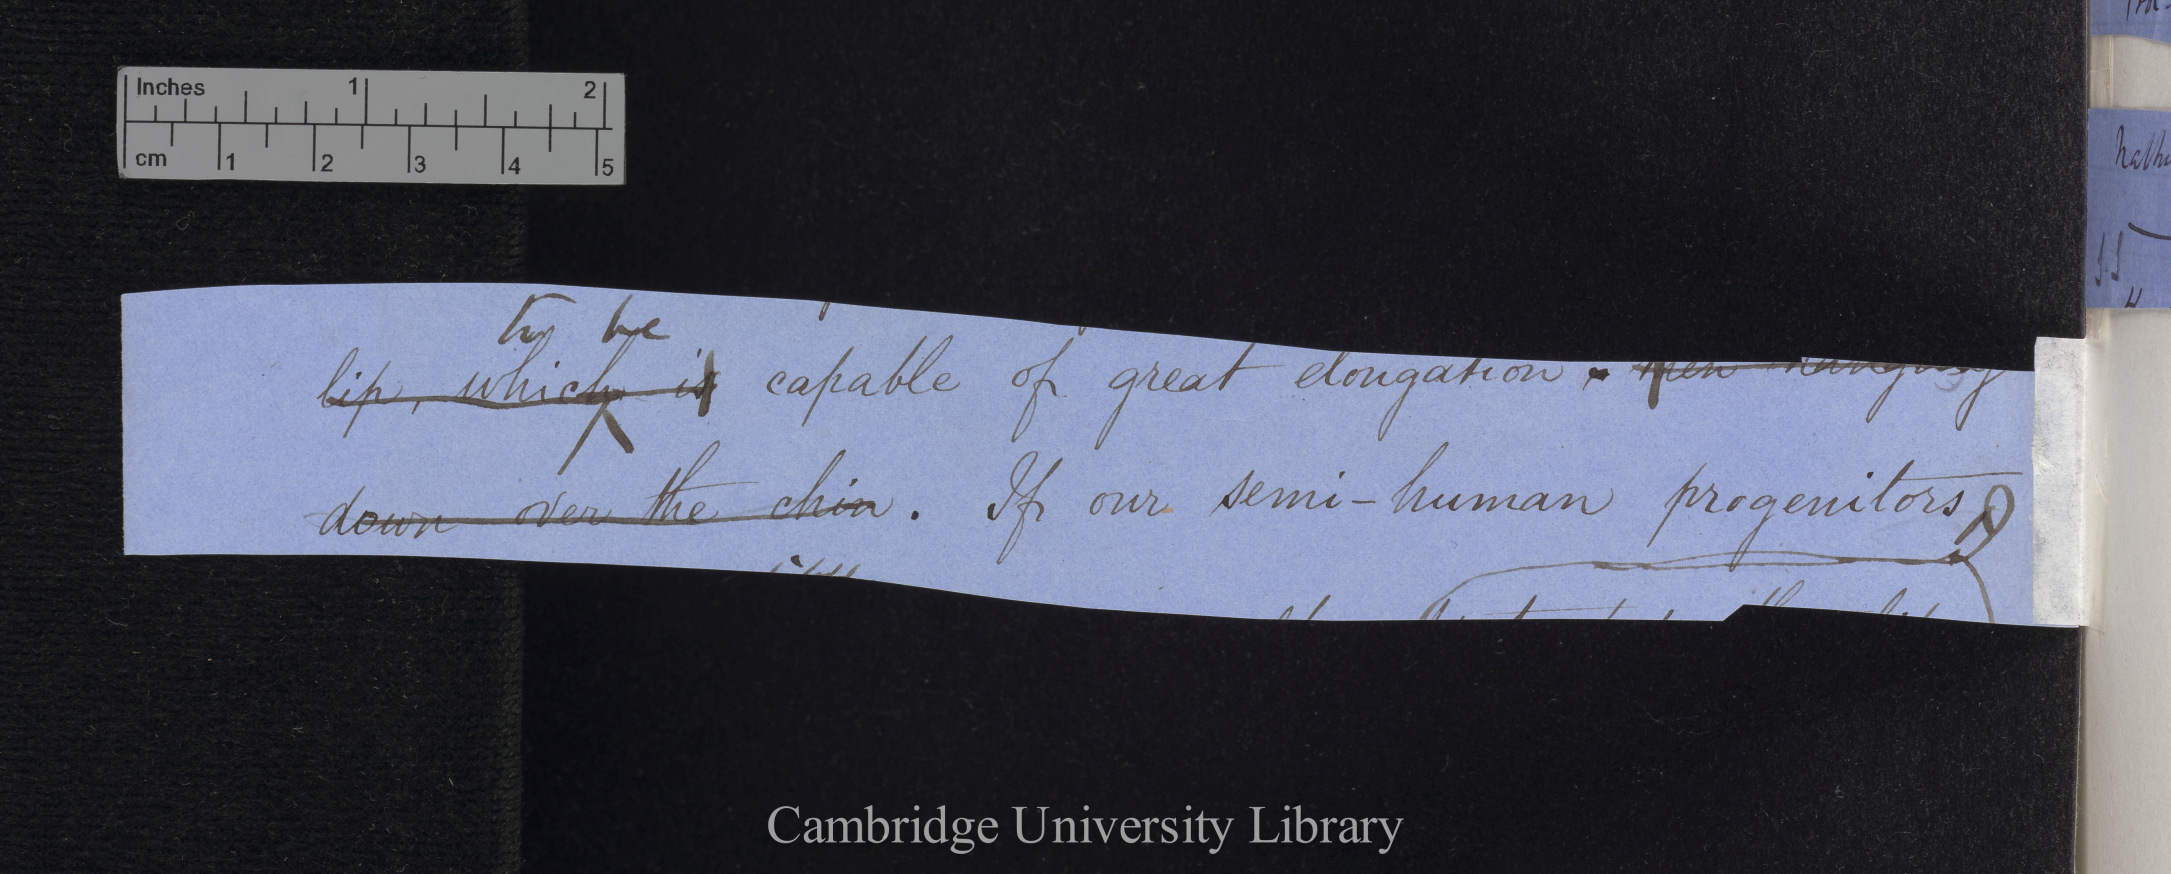 Inches 1 2
cm 1 2 3 4 5
to be
lip, which is capable of great elongation. then hanging
down over the chin. If our semi-human progenitors
Cambridge University Library